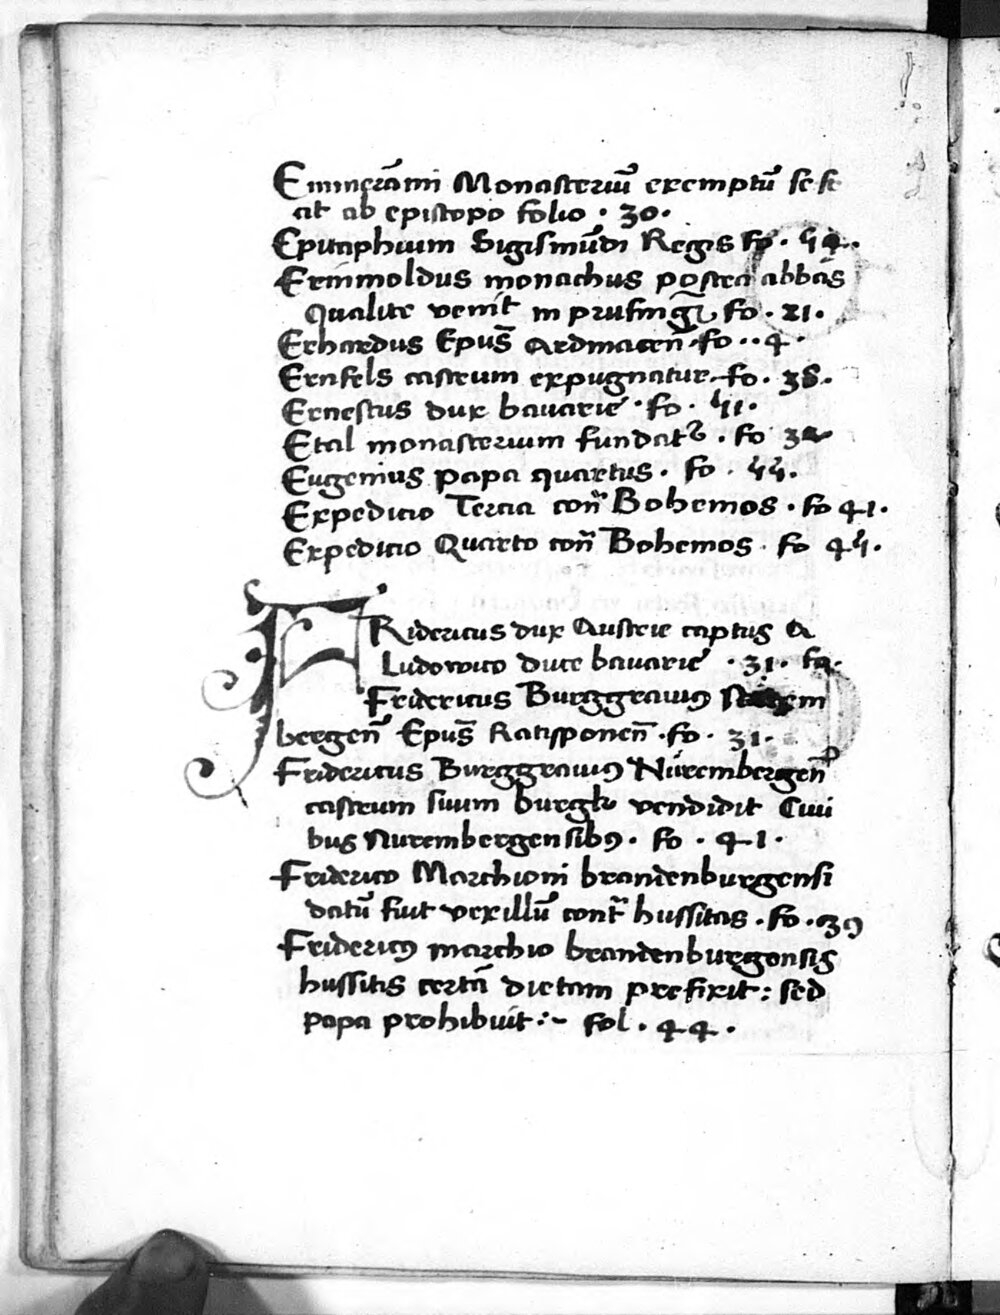 Emmerãmi Monasteriũ exemptũ se fe
cit ab episcopo folio · 30 ·
Epitaphium Sigismũdi Regis fo · 54 ·
Erminoldus monachus postea abbas
Qualitr venit in prufing fo · 21 ·
Erhardus Epũs Ardmacen̄ · fo · · 4 ·
Ernfels castrum expugnatur · fo · 38 ·
Ernestus dux bavarie · fo · 511 ·
Etal monasterium fundatr · fo 32
Eugenius papa quartus · fo · 55 ·
Expedicio Tercia con̄ Bohemos · fo 41 ·
Expedicio Quarto con̄ Bohemos · fo 45 ·
FRidericus dux Austrie captus a
Ludowico duce bavarie · 31 · fo ·
Fridericus Burggravi9 Nurem
bergen̄ Epũs Ratisponen̄ · fo · 31 ·
Fridericus Burggravi9 Nürembergen̄
castrum suum burgk vendidit Civi
bus Nurembergensib9 · fo · 41 ·
Friderico Marchioni brandenburgensi
datũ fuit vexillũ cont̃ hussitas · fo · 39
Frideric9 marchio brandenburgensis
hussitis certã dietam prefixit : sed
papa prohibuit :~ fol · 44 ·